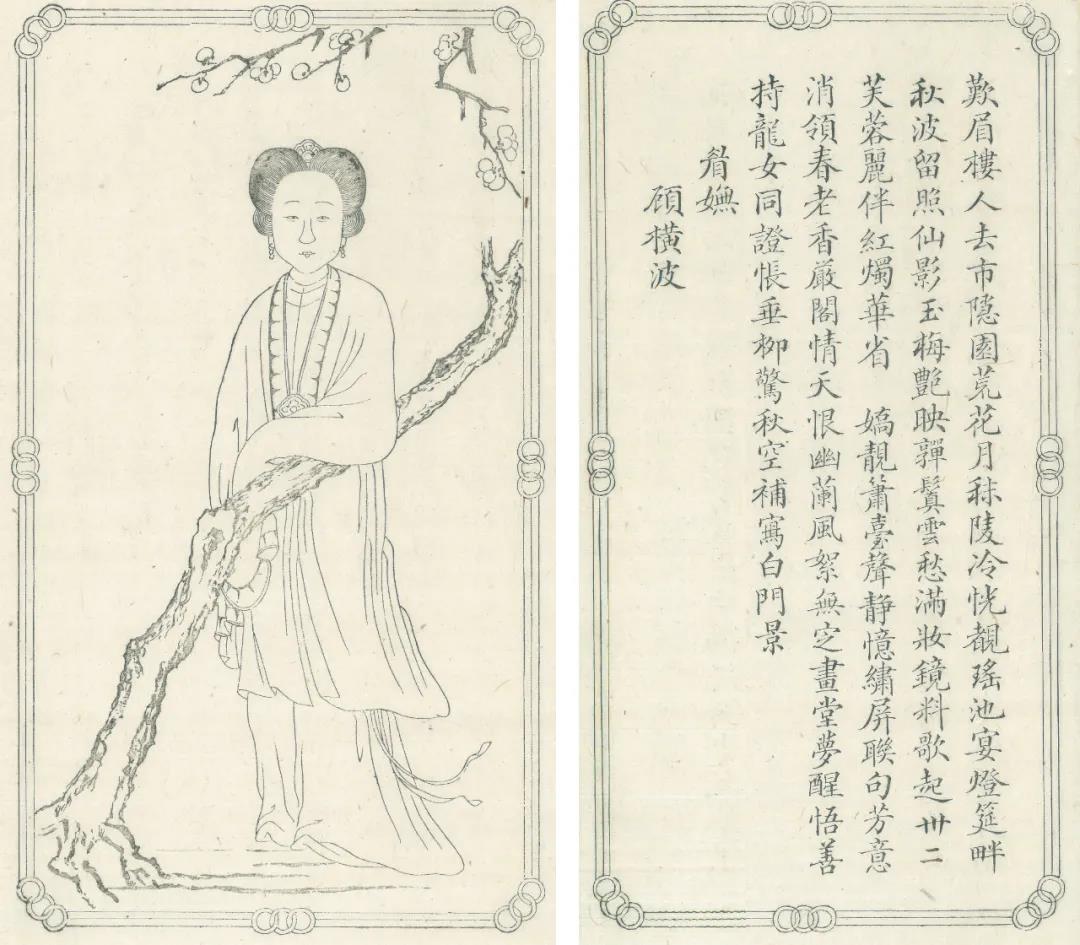 歎眉樓人去市隱園荒花月秣陵冷恍覩瑤池宴燈筵畔
秋波留照仙影玉梅艷映嚲鬟雲愁滿妝鏡料歌起卅二
芙蓉麗伴紅燭華省 嬌靚簫臺聲静憶繡屏聯句芳意
消領春老香嚴閣情天恨幽蘭風絮無定畫堂夢醒悟善
持龍女同證悵垂柳驚秋空補寫白門景
眉嫵
顧橫波